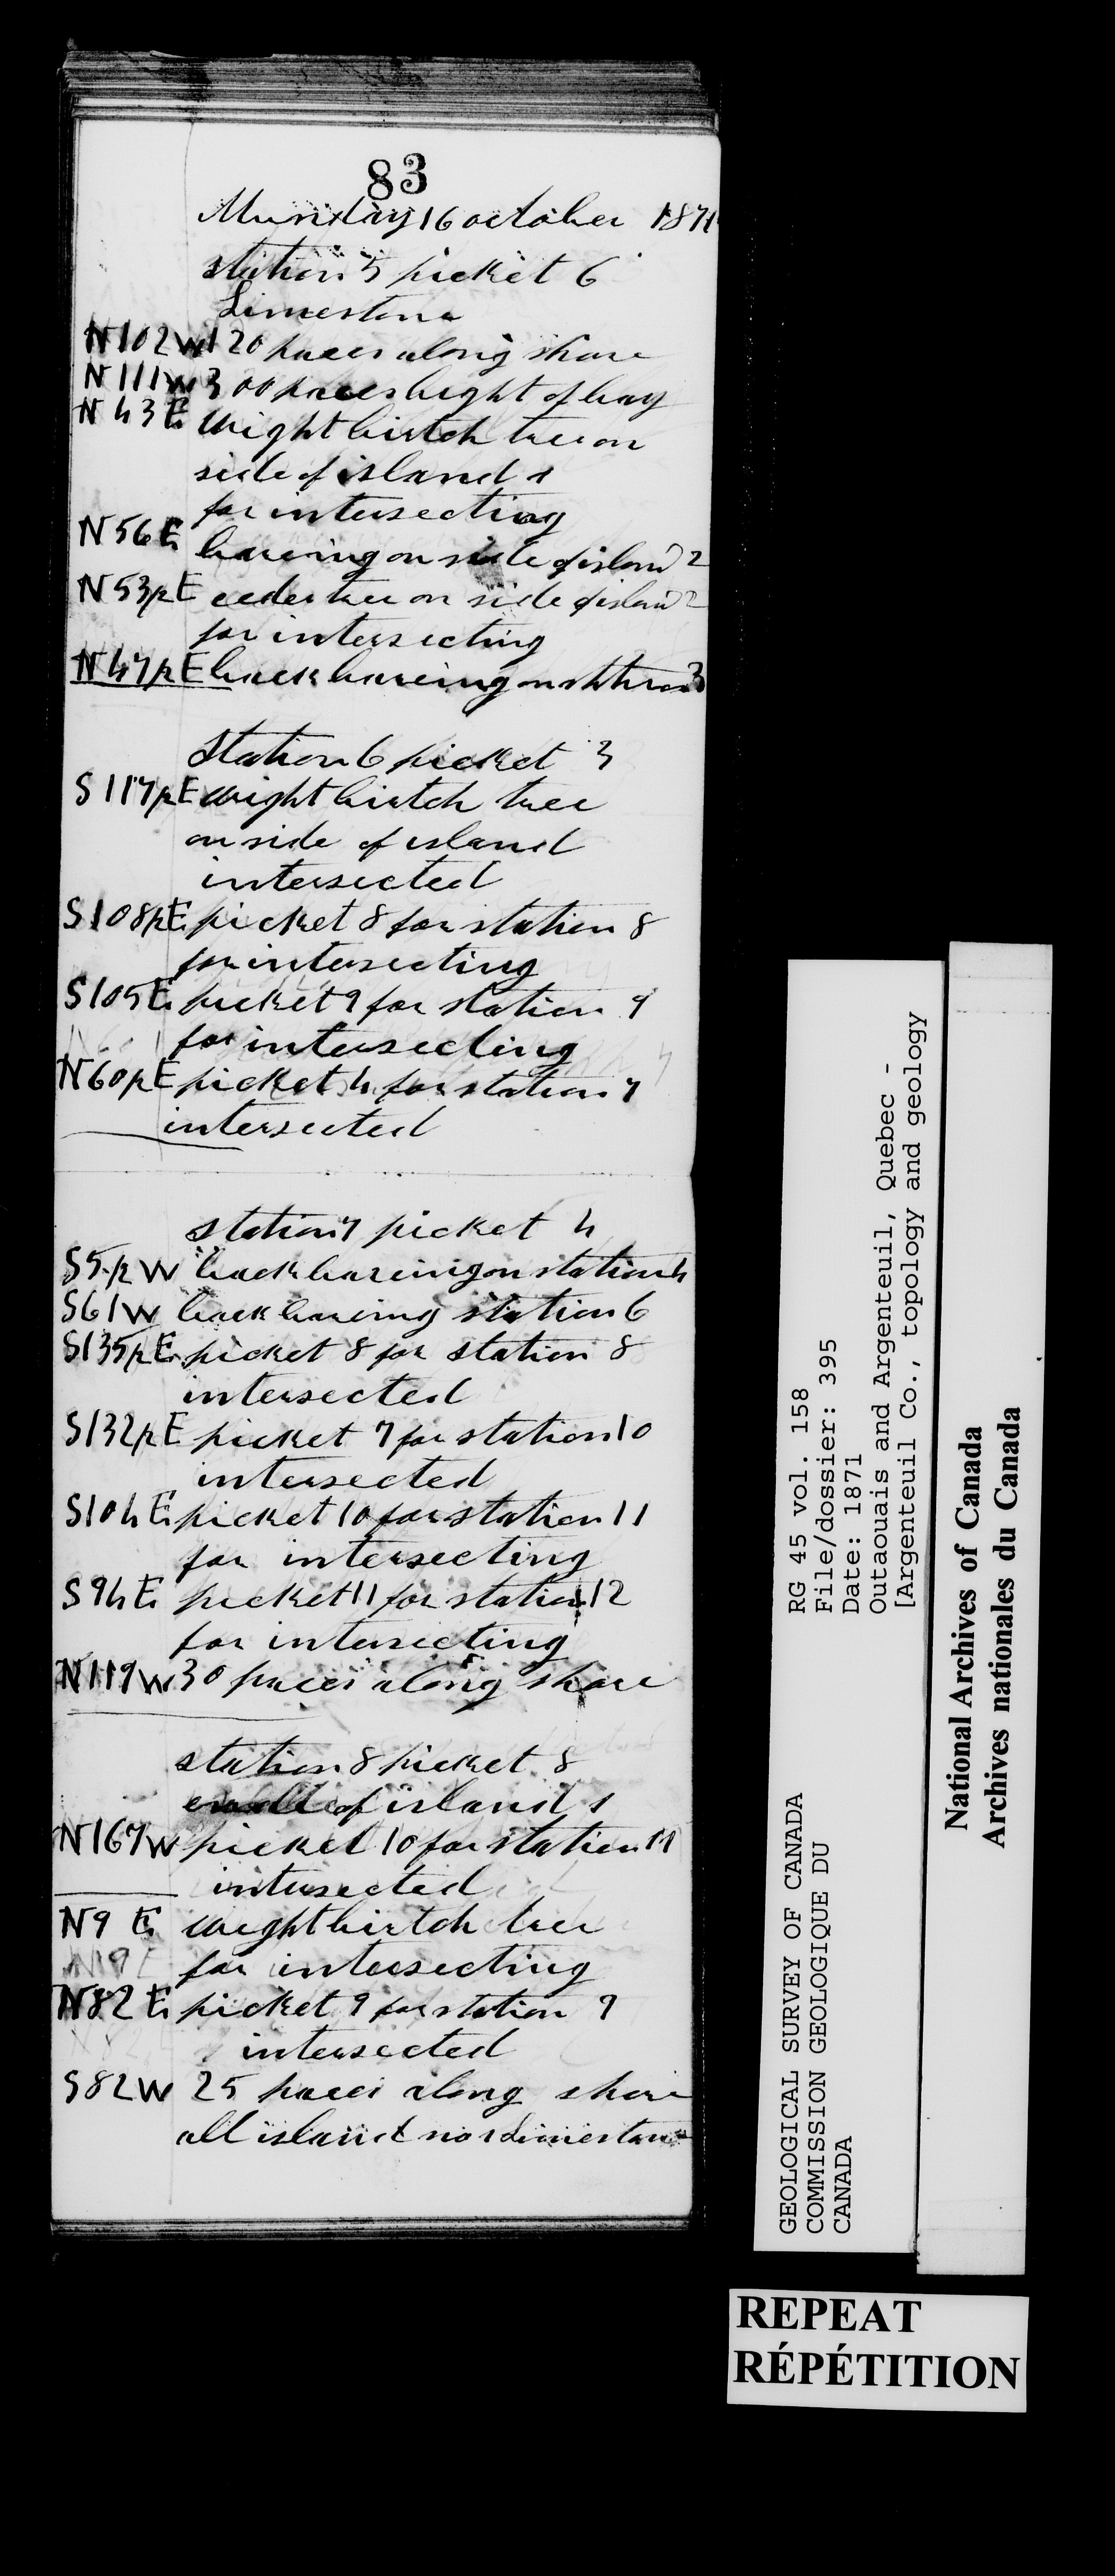 83
Munday 16 october 1871
station 5 picket 6
Limestone
N102W 120 paces along shore
N111W 300 paces hight of bay
N43E wight birtch tree on
side of island 1
for intersecting
N56E bareing on side of island 2
N53pE ceder tree on side of island 2
for intersecting
N47pE back bareing on 3
Station 6 picket 3
S117pE wight birtch tree
on side of island
intersected
S108pE picket 8 for station 8
for intersecting
S105E picket 9 for station 9
for intersecting
N60pE picket 4 for station 7
intersected
station 7 picket 4
S5pW back bareing on station 4
S61W back bareing station 6
S135pE picket 8 for station 8
intersected
S132pE picket 7 for station 10
intersected
S104E picket 10 for station 11
for intersecting
S94E picket 11 for station 12
for intersecting
N119W 30 paces along shore
station 8 picket 8
of island 1
N167W picket 10 for station 11
intersected
N9 E wight birtch tree
for intersecting
N82E picket 9 for station 9
intersected
S82W 25 paces along shore
all island no Limestone
RG 45 vol. 158
File/dossier: 395
Date: 1871
Outaouais and Argenteuil, Quebec -
[Argenteuil Co., topology and geology
GEOLOGICAL SURVEY OF CANADA
COMMISSION GEOLOGIQUE DU
CANADA
National Archives of Canada
Archives nationales du Canada
REPEAT
RÉPÉTITION